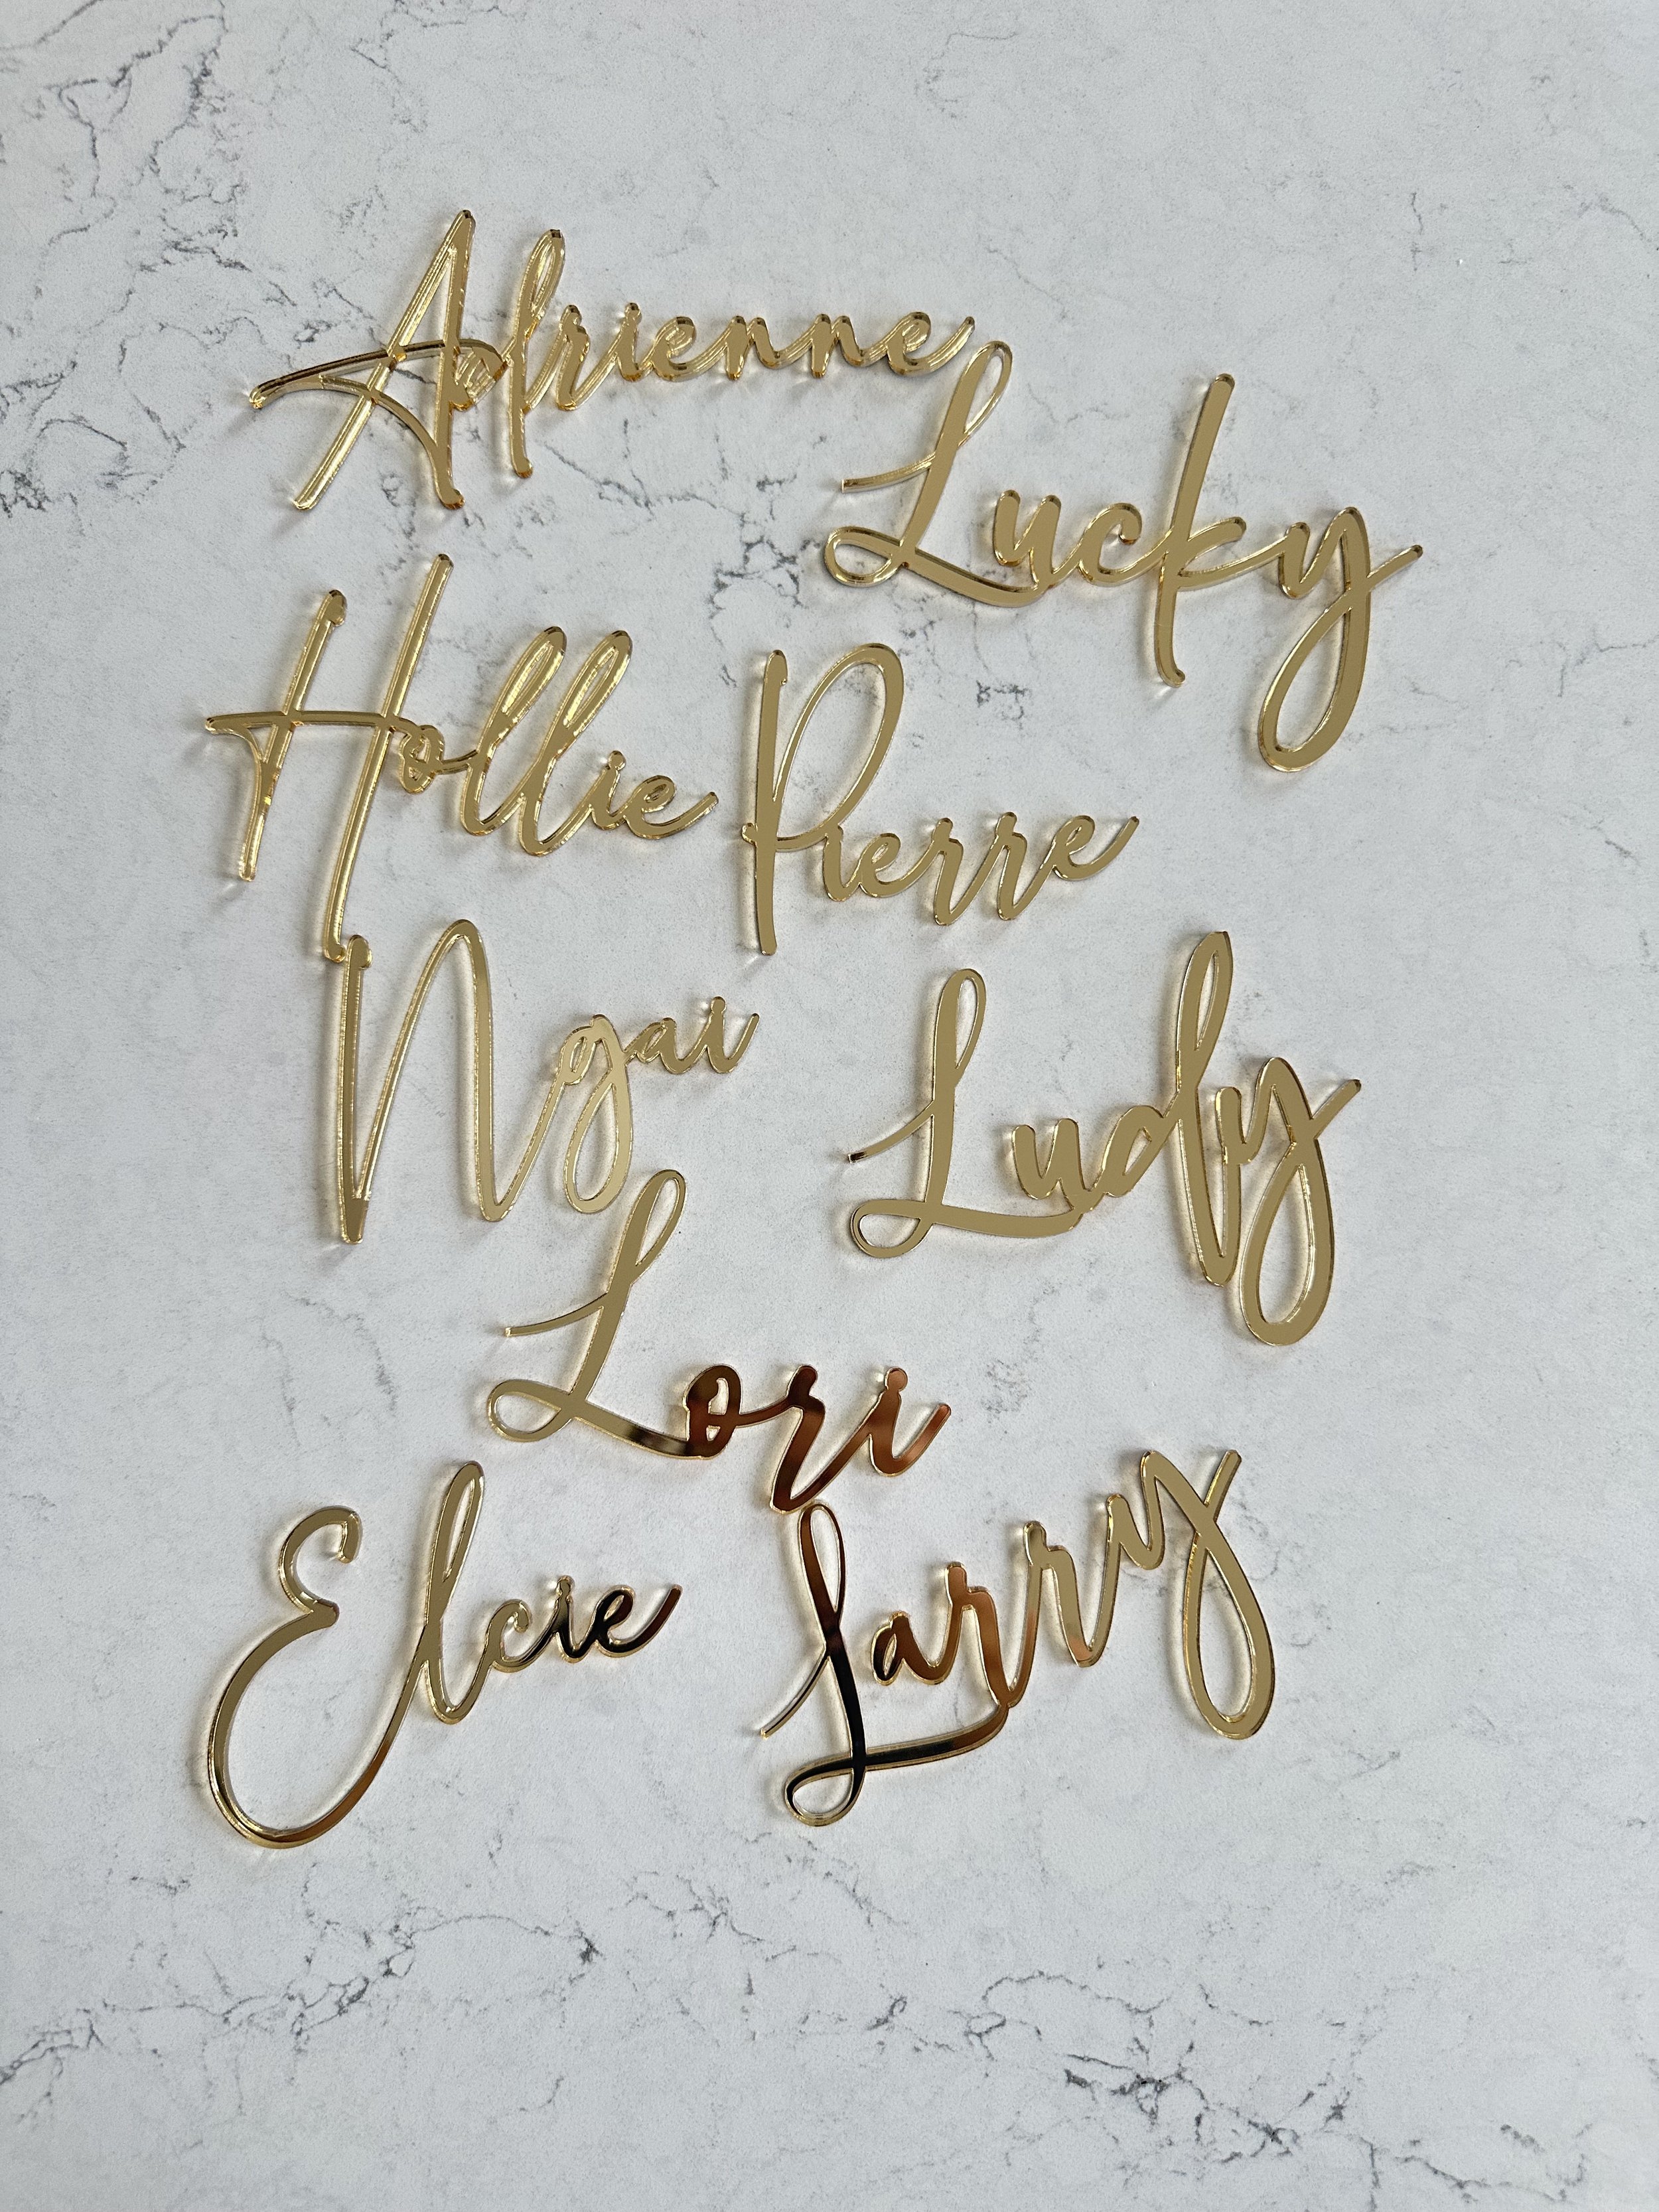 Adrienne
Lucky
Hollie
Pierre
Ngai
Ludy
Lori
Elcie
Larry